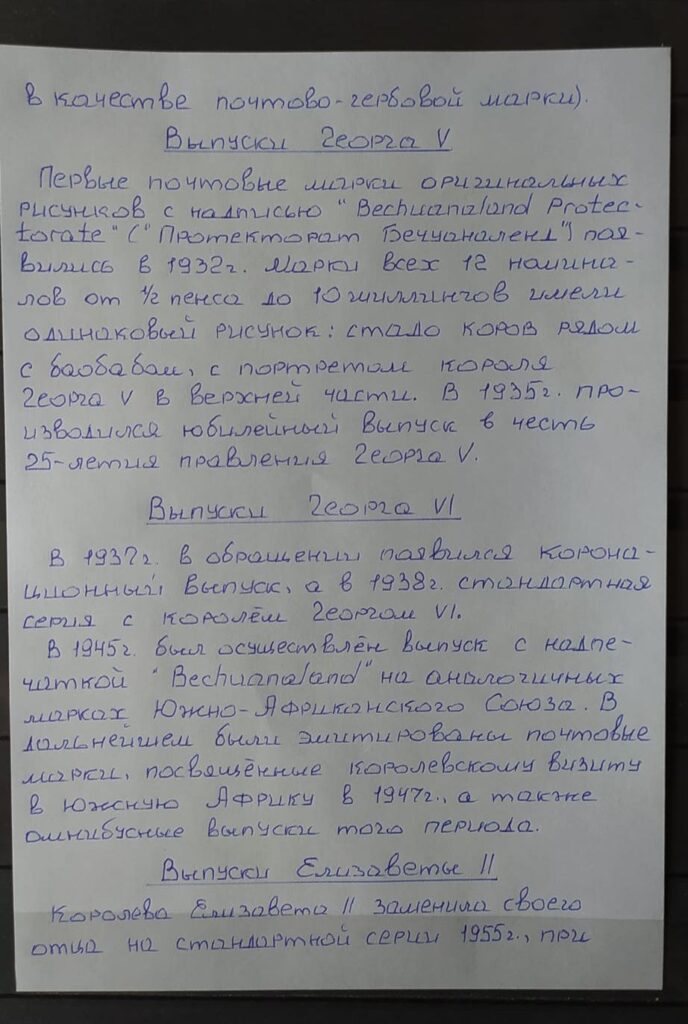 в качестве почтово-гербовой марки).
Выпуски Георга V
Первые почтовые марки оригинальных
рисунков с надписью "Bechuanaland Protec-
torate" ("Протекторат Бечуаналенд") поя-
вились в 1932г. Марки всех 12 номина-
лов от 1/2 пенса до 10 шиллингов имели
одинаковый рисунок: стадо коров рядом
с баобабом, с портретом короля
Георга V в верхней части. В 1935г. про-
изводился юбилейный выпуск в честь
25-летия правления Георга V.
Выпуски Георга VI
В 1937г. в обращении появился корона-
ционный выпуск, а в 1938г. стандартная
серия с королём Георгом VI.
В 1945г. был осуществлён выпуск с надпе-
чаткой "Bechuanaland" на аналогичных
марках Южно-Африканского Союза. В
дальнейшем были эмитированы почтовые
марки, посвящённые королевскому визиту
в Южную Африку в 1947г., а также
омнибусные выпуски того периода.
Выпуски Елизаветы II
Королева Елизавета II заменила своего
отца на стандартной серии 1955г., при